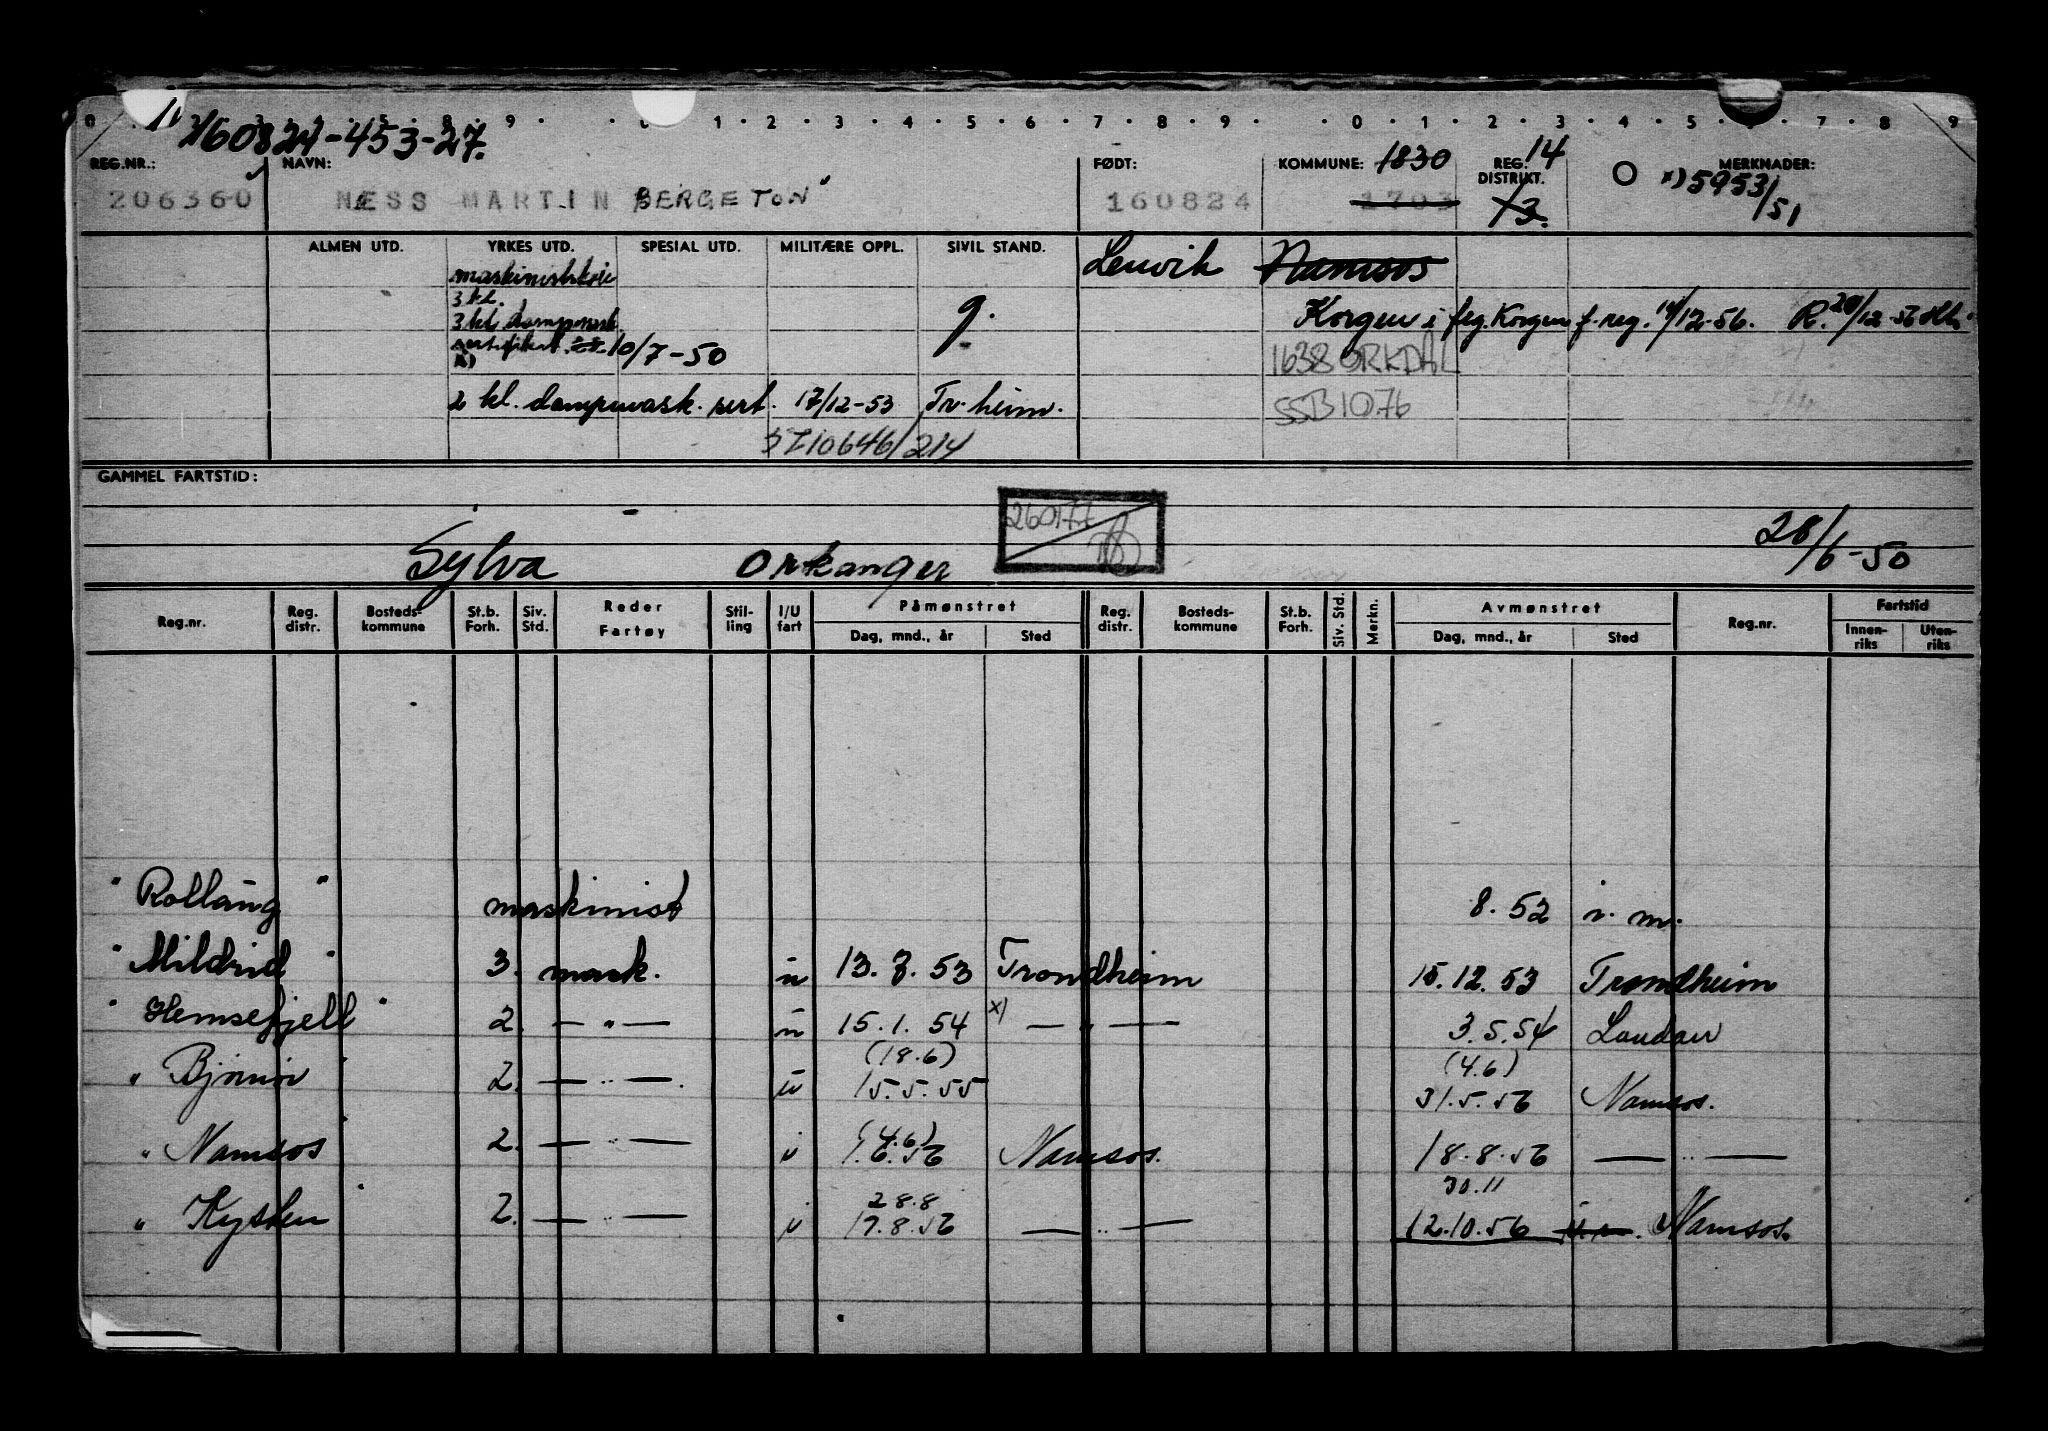 160824-453-27.
0 1 2 3 4 5 6 7 8 9 0 1 2 3 4 5 7 8 9
REG.NR.: NAVN: FØDT: KOMMUNE: 1830 REG. DISTRIKT. 14 MERKNADER:
206360 NÆSS MARTIN BERGETON 160824 1703 13. x) 5953/51
ALMEN UTD. YRKES UTD. SPESIAL UTD. MILITÆRE OPPL. SIVIL STAND. Lenvik Namsos
maskinistskole
3 kl.
3 kl. dampmask. g. Korgen i feg. Korgen f. reg. 14/12-56. R. 20/12-56
sertifikat 10/7-50 1638 ORKDAL
x)
2 kl. dampmask. sert. 17/12-53 Tr.heim. SSB 10.76
10646/214
GAMMEL FARTSTID:
260177
Sylva Orkanger 28/6-50
Reg.nr. Reg. distr. Bosteds-kommune St.b. Forh. Siv. Std. Reder Fartøy Stil-ling I/U fart Påmønstret Dag, mnd., år Sted Reg. distr. Bosteds-kommune St.b. Forh. Siv. Std. Merkn. Avmønstret Dag, mnd., år Sted Reg.nr. Fartstid Innen-riks Uten-riks
" Rollaug " maskinist 8. 52 i. m.
" Mildrid " 3. mask. u 13. 7. 53 Trondheim 15. 12. 53 Trondheim
" Hemsefjell " 2. — " — u 15. 1. 54 x) — " — 3. 5. 54 London
(18.6) (4.6)
" Bjønør " 2. — " — . u 15. 5. 55 31. 5. 56 Namsos.
(4.6)
" Namsos 2. — " — i 1. 6. 56 Namsos. 18. 8. 56 — " —
28.8 30.11
" Kysten 2. — " — i 17. 8. 56 — " — 12. 10. 56 Namsos.